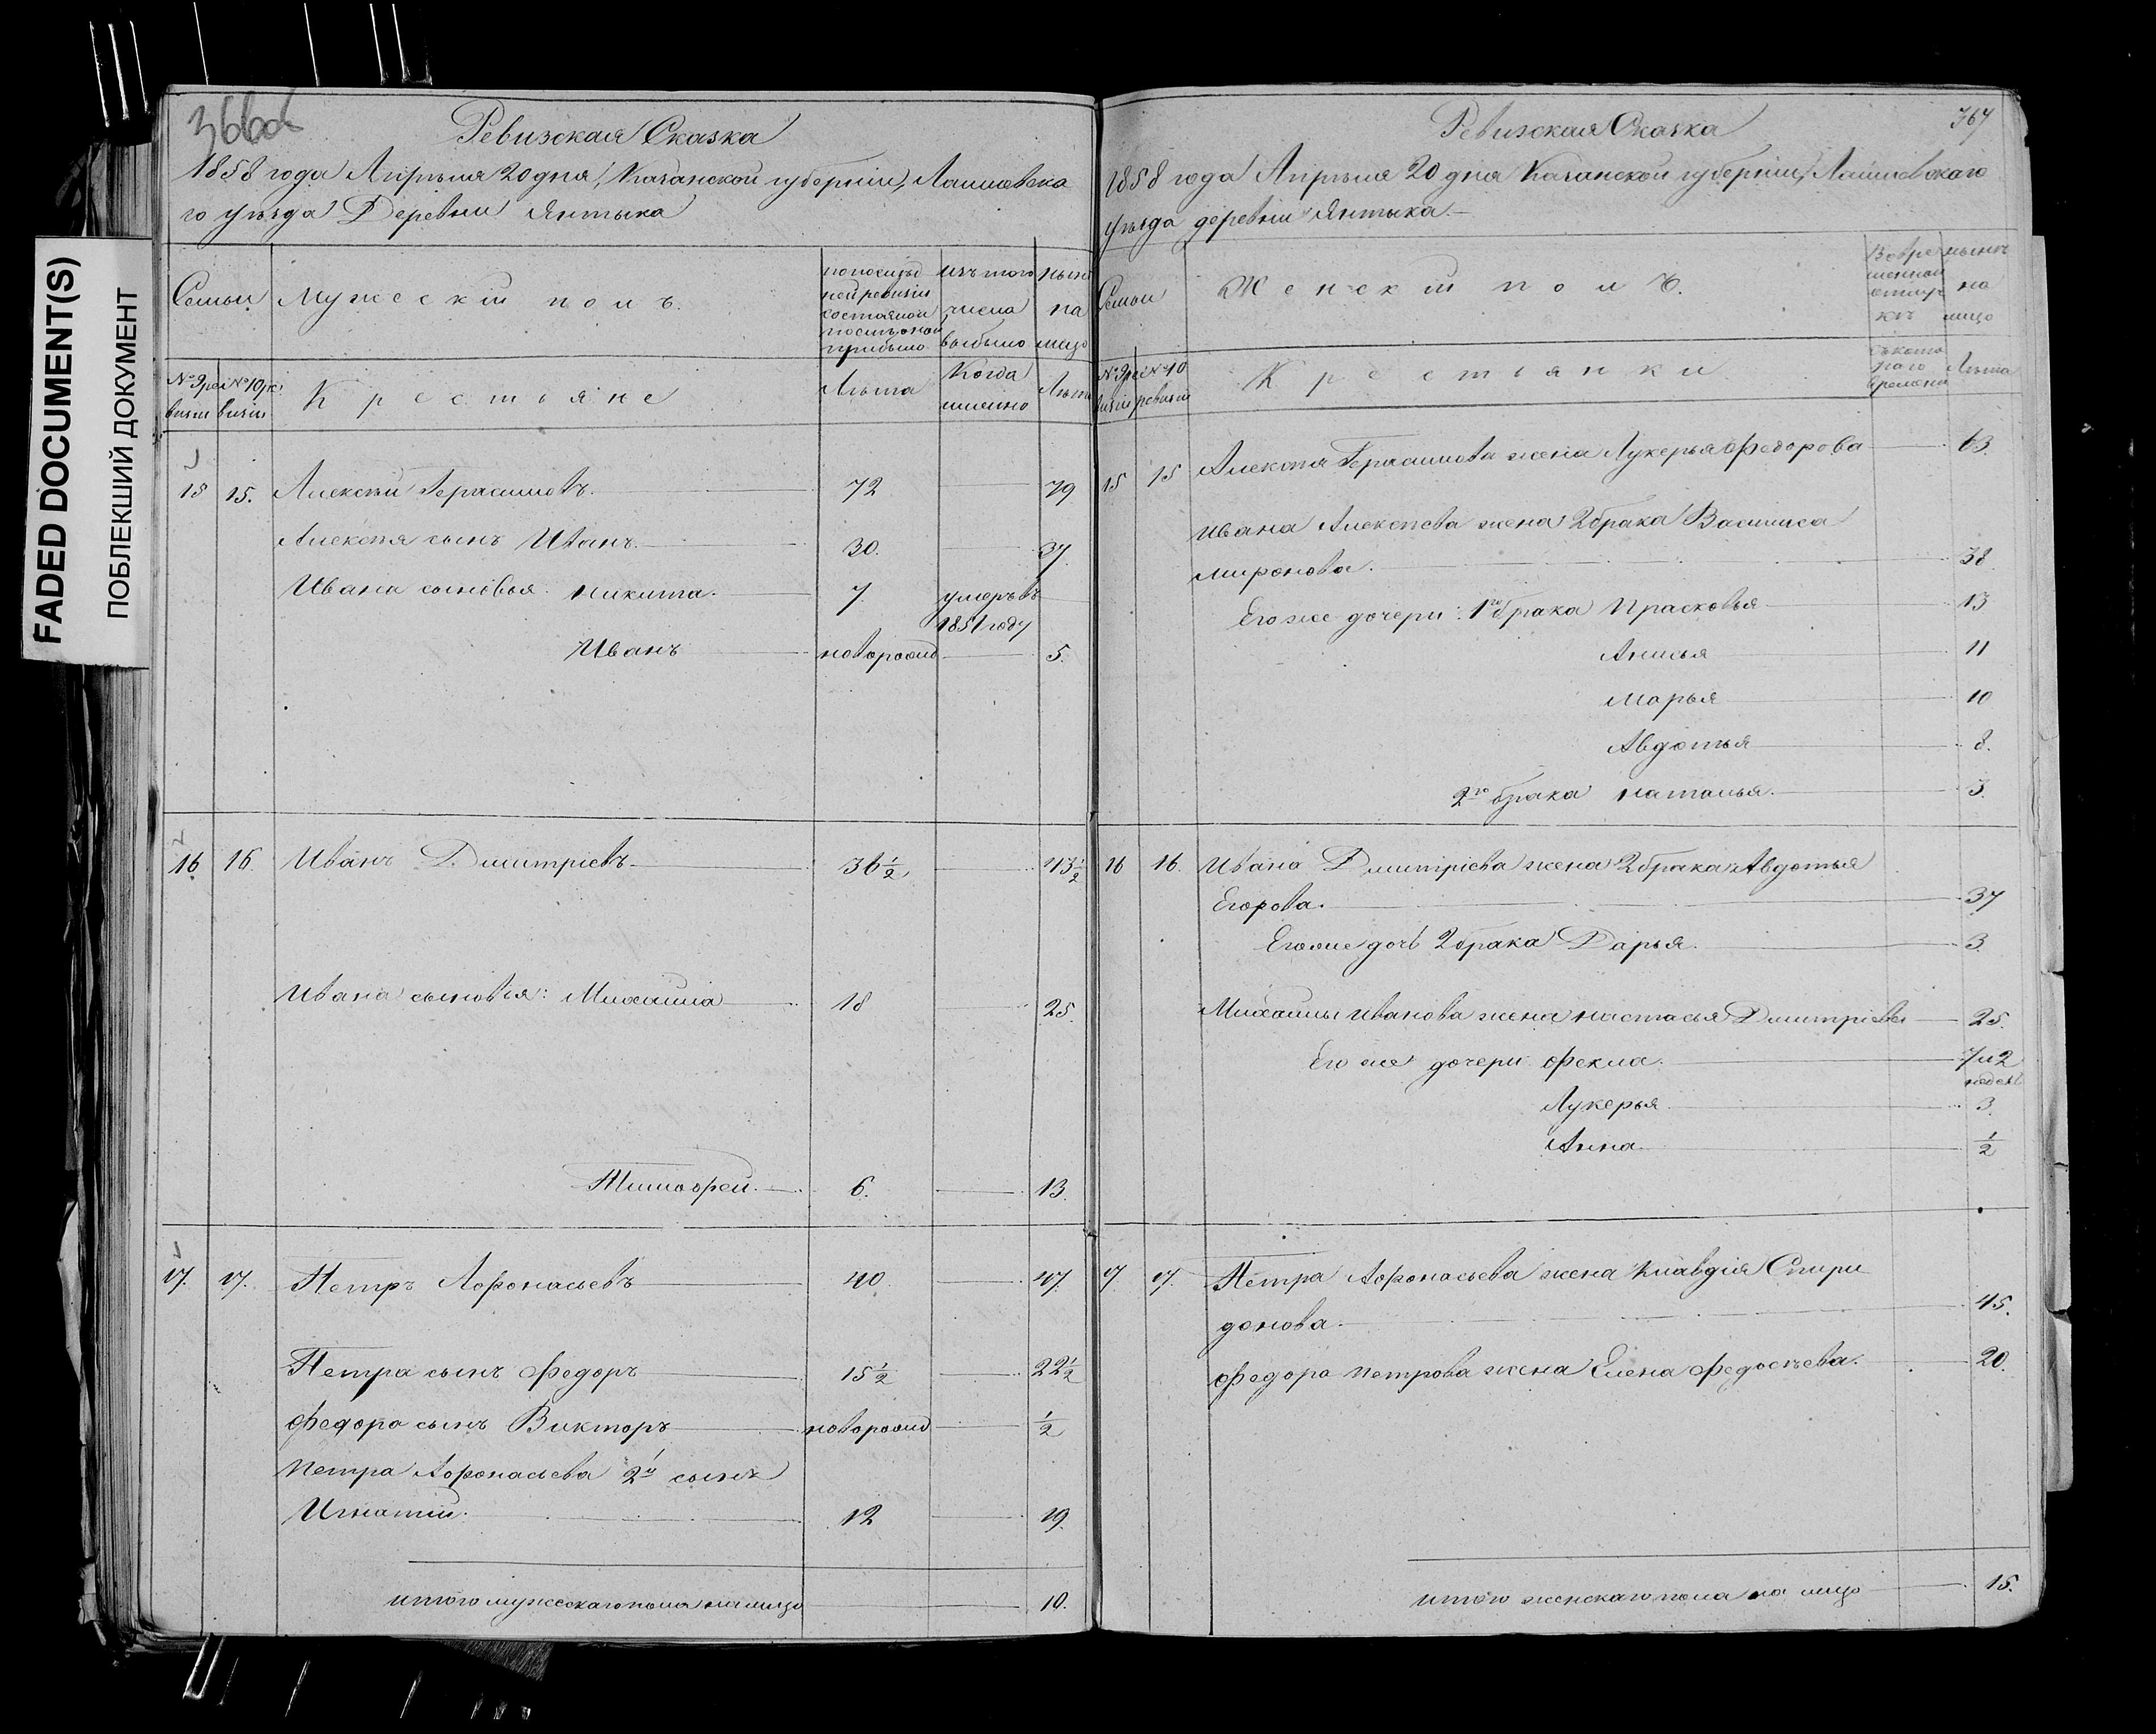 FADED DOCUMENT(S)
ПОБЛЕКШИЙ ДОКУМЕНТ
366об
Ревизская Сказка
1858 года Апрѣля 20 дня, Казанской губернии, Лаишевска
го уѣзда Деревни Янтыка
Семьи
Мужескій полъ.
по послѣд
ней ревизіи
состояло и
послѣ оной
прибыло
изъ того
числа
выбыло
нынѣ
на
лицо
№ 9 ре
визіи
№ 10 ре
визіи
Крестьяне
Лѣта
Когда
именно
Лѣта
15 15. Алексѣй Герасимовъ. 72 79
Алексѣя сынъ Иванъ. 30. 37.
Ивана сыновья: Никита. 7. умеръ въ
1851 году
Иванъ новорожд 5.
16 16. Иванъ Дмитріевъ. 36 1/2 43 1/2
Ивана сыновья: Михайла 18 25.
Тимофей. 6. 13.
17. 17. Петръ Афонасьевъ 40. 47.
Петра сынъ Федоръ 15 1/2 22 1/2
Федора сынъ Викторъ новорожд 1/2
Петра Афонасьева 2й сынъ
Игнатій. 12 19.
итого мужескаго пола на лицо 10.
367
Ревизская Сказка
1858 года Апрѣля 20 дня Казанской губерніи, Лаишевскаго
уѣзда деревни Янтыка.
Семьи
Женскій полъ.
Во вре
менной
отлуч
кѣ
нынѣ
на
лицо
№ 9 ре
визіи
№ 10
ревизіи
Крестьянки
съ кото
раго
времени
Лѣта
15 15 Алексѣя Герасимова жена Лукерья Федорова 63.
Ивана Алексѣева жена 2 брака Василиса
Миронова. 38.
Его же дочери: 1го брака Прасковья 13
Анисья 11
Марья 10
Авдотья 8.
2го брака Наталья. 3.
16 16. Ивана Дмитріева жена 2 брака Авдотья
Егорова. 37
Его же дочь 2 брака Дарья. 3.
Михайлы Иванова жена Настасья Дмитріева 25.
Его же дочери Фекла. 7 и 2
недели
Лукерья 3.
Анна. 1/2
17 17. Петра Афонасьева жена Клавдія Спири
донова. 45.
Федора Петрова жена Елена Федосѣева. 20.
итого женскаго пола на лицо 15.